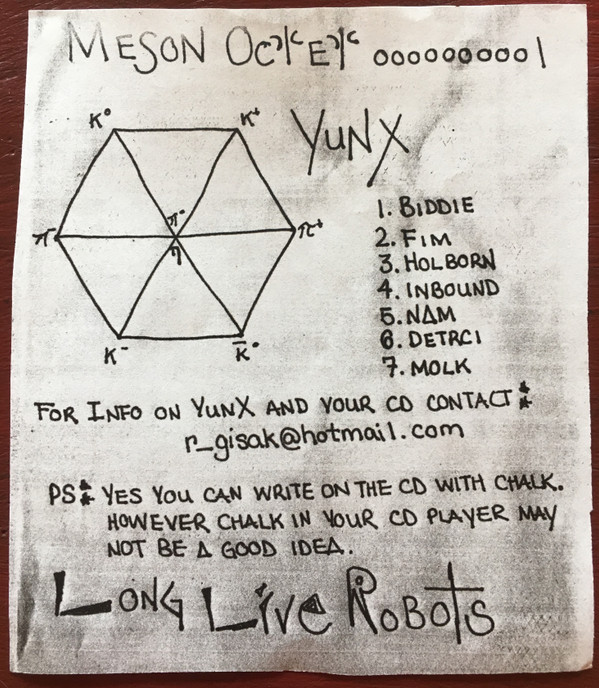 MESON OCTET 0000000001
YUNX
K° K+
π- π° π+
η
K- K̄°
1. BIDDIE
2. FIM
3. HOLBORN
4. INBOUND
5. NΔM
6. DETRCI
7. MOLK
FOR INFO ON YUNX AND YOUR CD CONTACT:
r_gisak@hotmail.com
PS: YES YOU CAN WRITE ON THE CD WITH CHALK.
HOWEVER CHALK IN YOUR CD PLAYER MAY
NOT BE A GOOD IDEA.
LONG LIVE ROBOTS